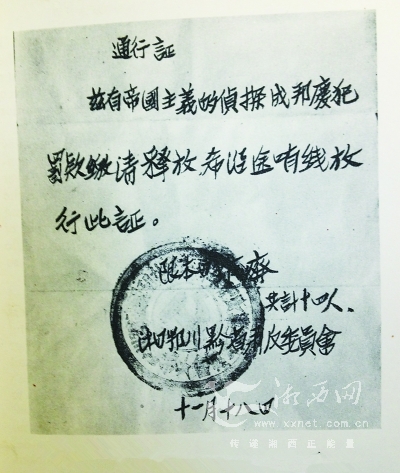 通行証
茲有帝國主義的偵探成邦慶犯
罰款繳清釋放希沿途哨线放
行此証。
限本
共計十四人、
川黔
委員會
十一月十八日
湘西网
www.xxnet.com.cn
传递湘西正能量